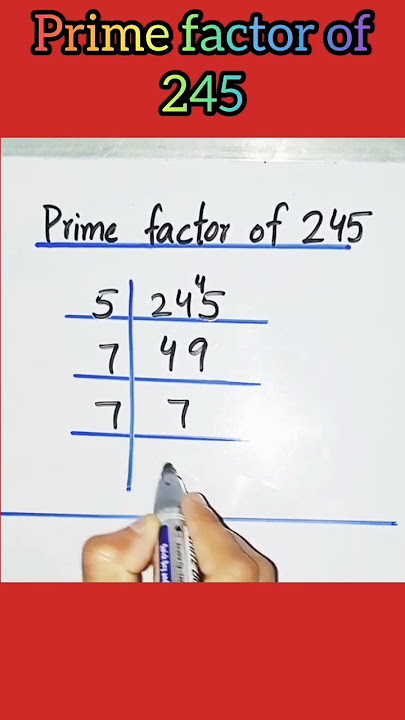 Prime factor of
245
Prime factor of 245
5 24⁴5
7 49
7 7